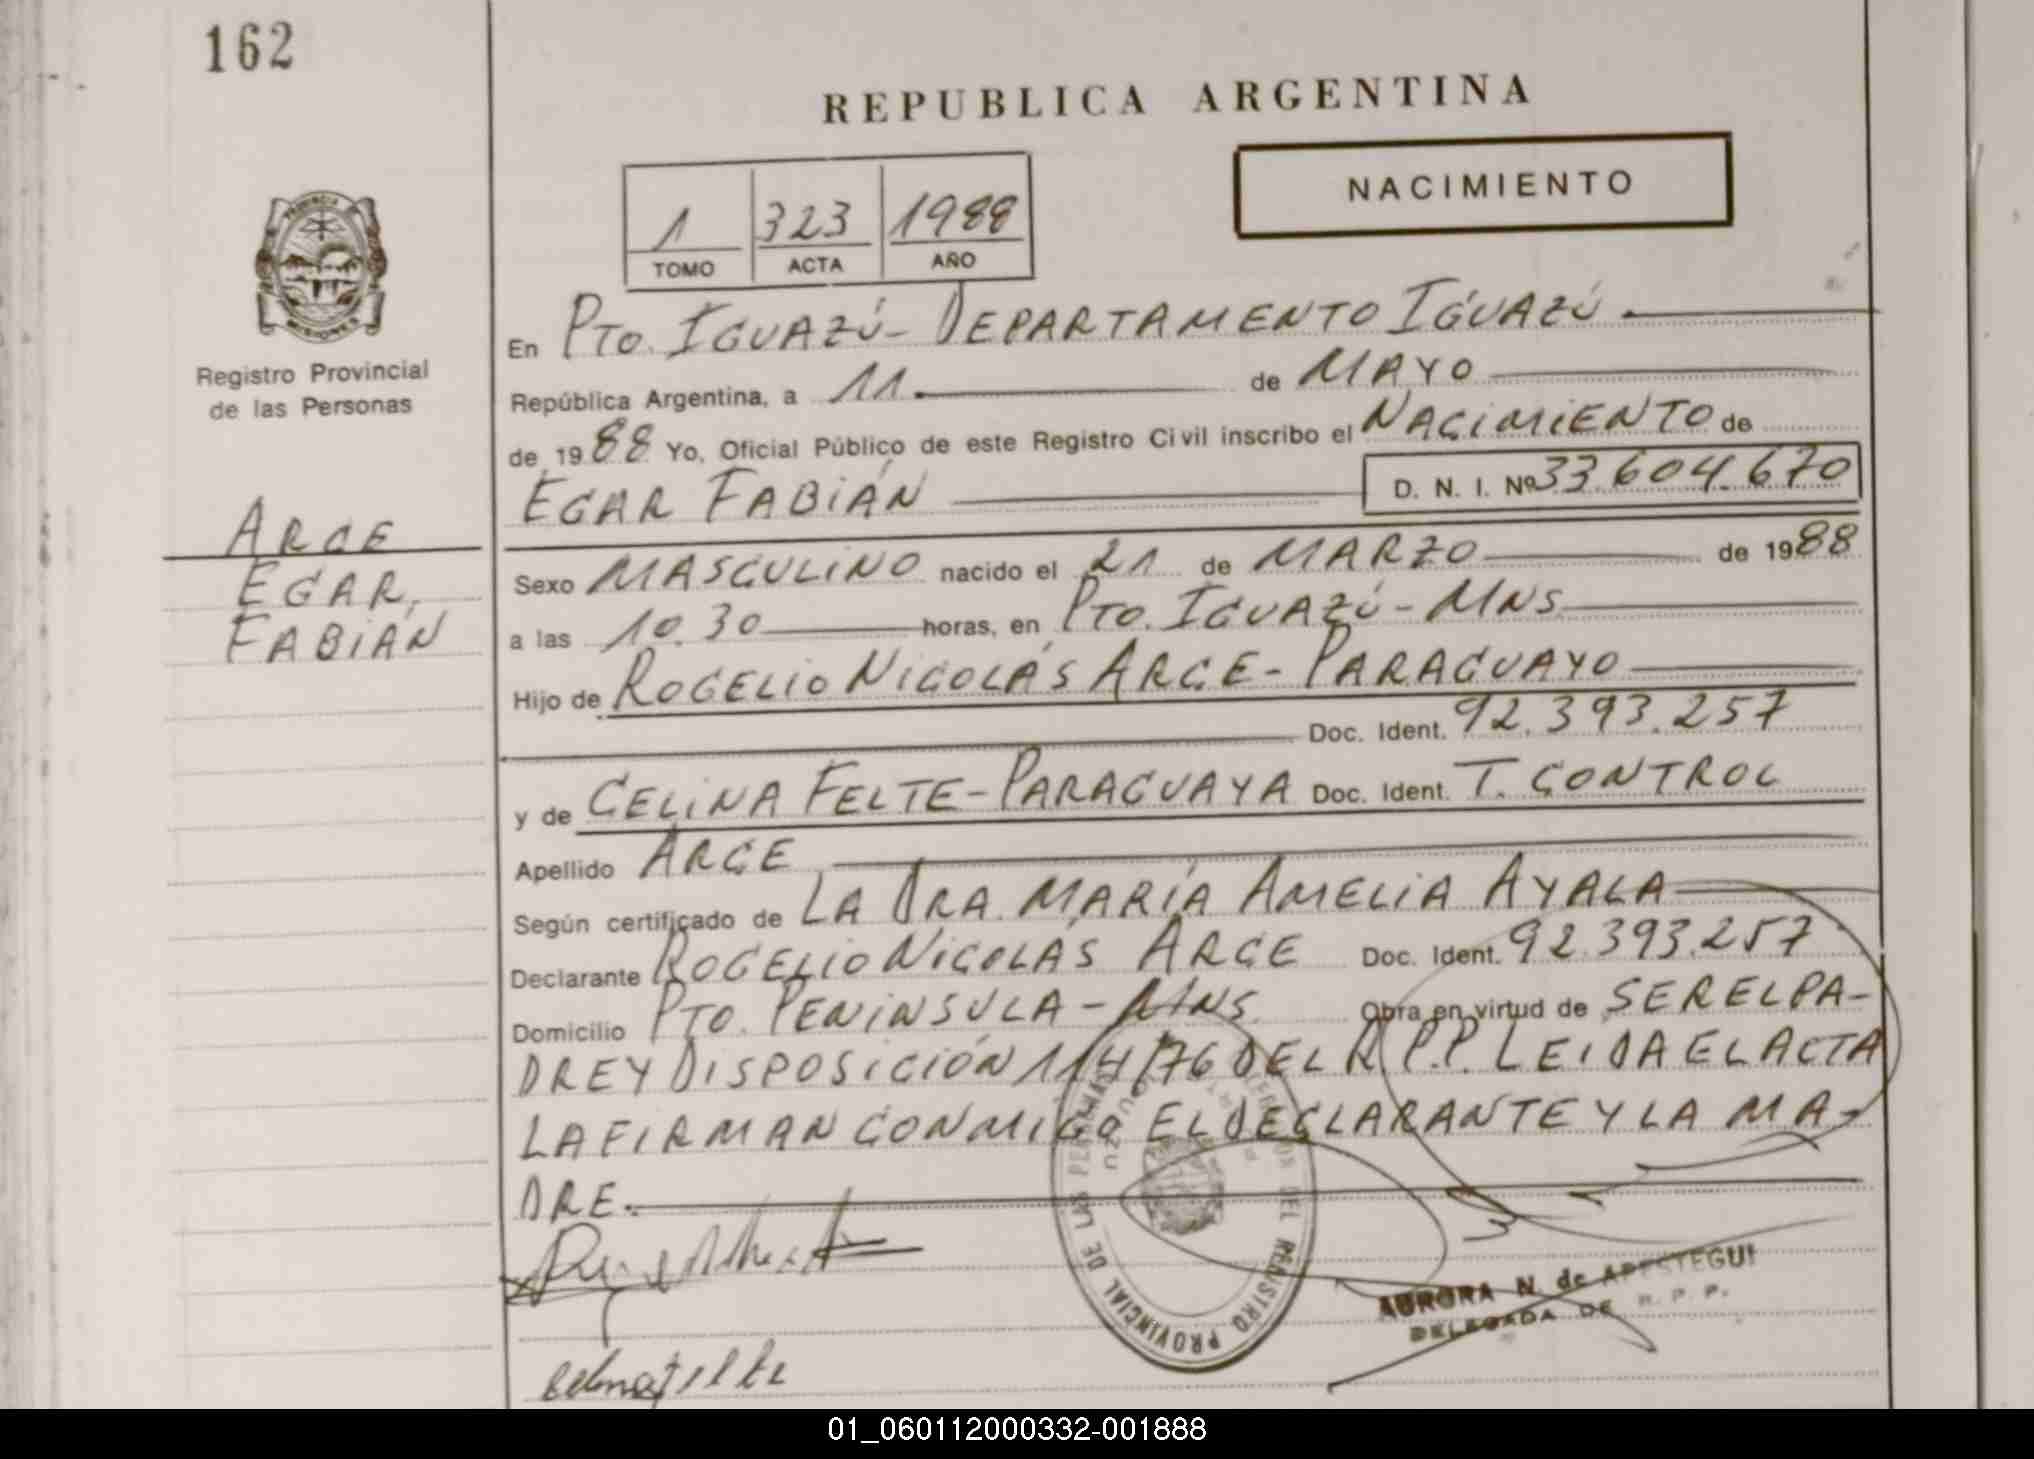 162
REPUBLICA ARGENTINA
NACIMIENTO
1 323 1988
TOMO ACTA AÑO
PROVINCIA
MISIONES
Registro Provincial
de las Personas
En Pto. IGUAZÚ - DEPARTAMENTO IGUAZÚ
República Argentina, a 11 de MAYO
de 1988 Yo, Oficial Público de este Registro Civil inscribo el NACIMIENTO de
EGAR FABIÁN D. N. I. Nº 33.604.670
ARCE
EGAR,
FABIÁN
Sexo MASCULINO nacido el 21 de MARZO de 1988
a las 10.30 horas, en Pto. IGUAZÚ - MNS.
Hijo de ROGELIO NICOLÁS ARCE - PARAGUAYO
Doc. Ident. 92.393.257
y de CELINA FELTE - PARAGUAYA Doc. Ident. T. CONTROL
Apellido ARCE
Según certificado de LA DRA. MARÍA AMELIA AYALA
Declarante ROGELIO NICOLÁS ARCE Doc. Ident. 92.393.257
Domicilio PTO. PENINSULA - MNS. Obra en virtud de SER EL PA-
DRE Y DISPOSICIÓN 114/76 DEL R.P.P. LEIDA EL ACTA
LA FIRMAN CONMIGO EL DECLARANTE Y LA MA-
DRE.
REGISTRO PROVINCIAL DE LAS PERSONAS
AURORA N. de APESTEGUI
DELEGADA DE R. P. P.
Celina Felte
01_060112000332-001888